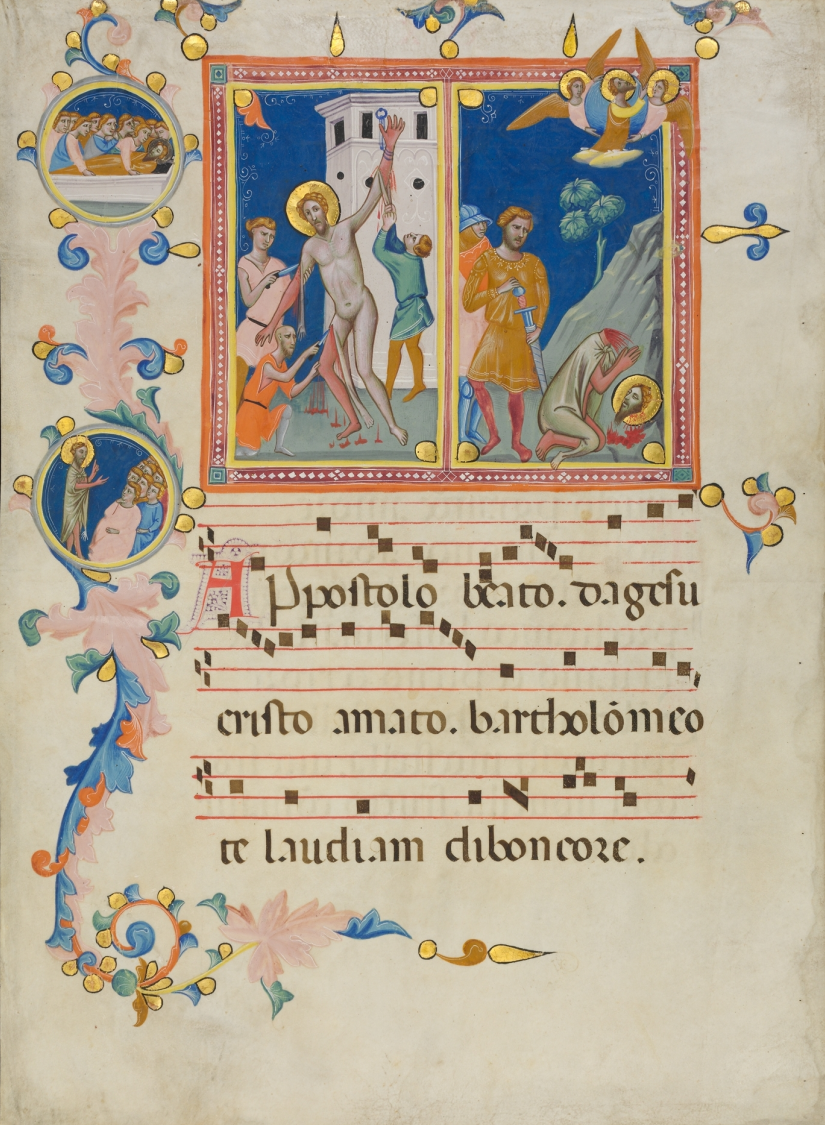 Appostolo beato. dagesu
cristo amato. bartholōmeo
te laudiam diboncore.